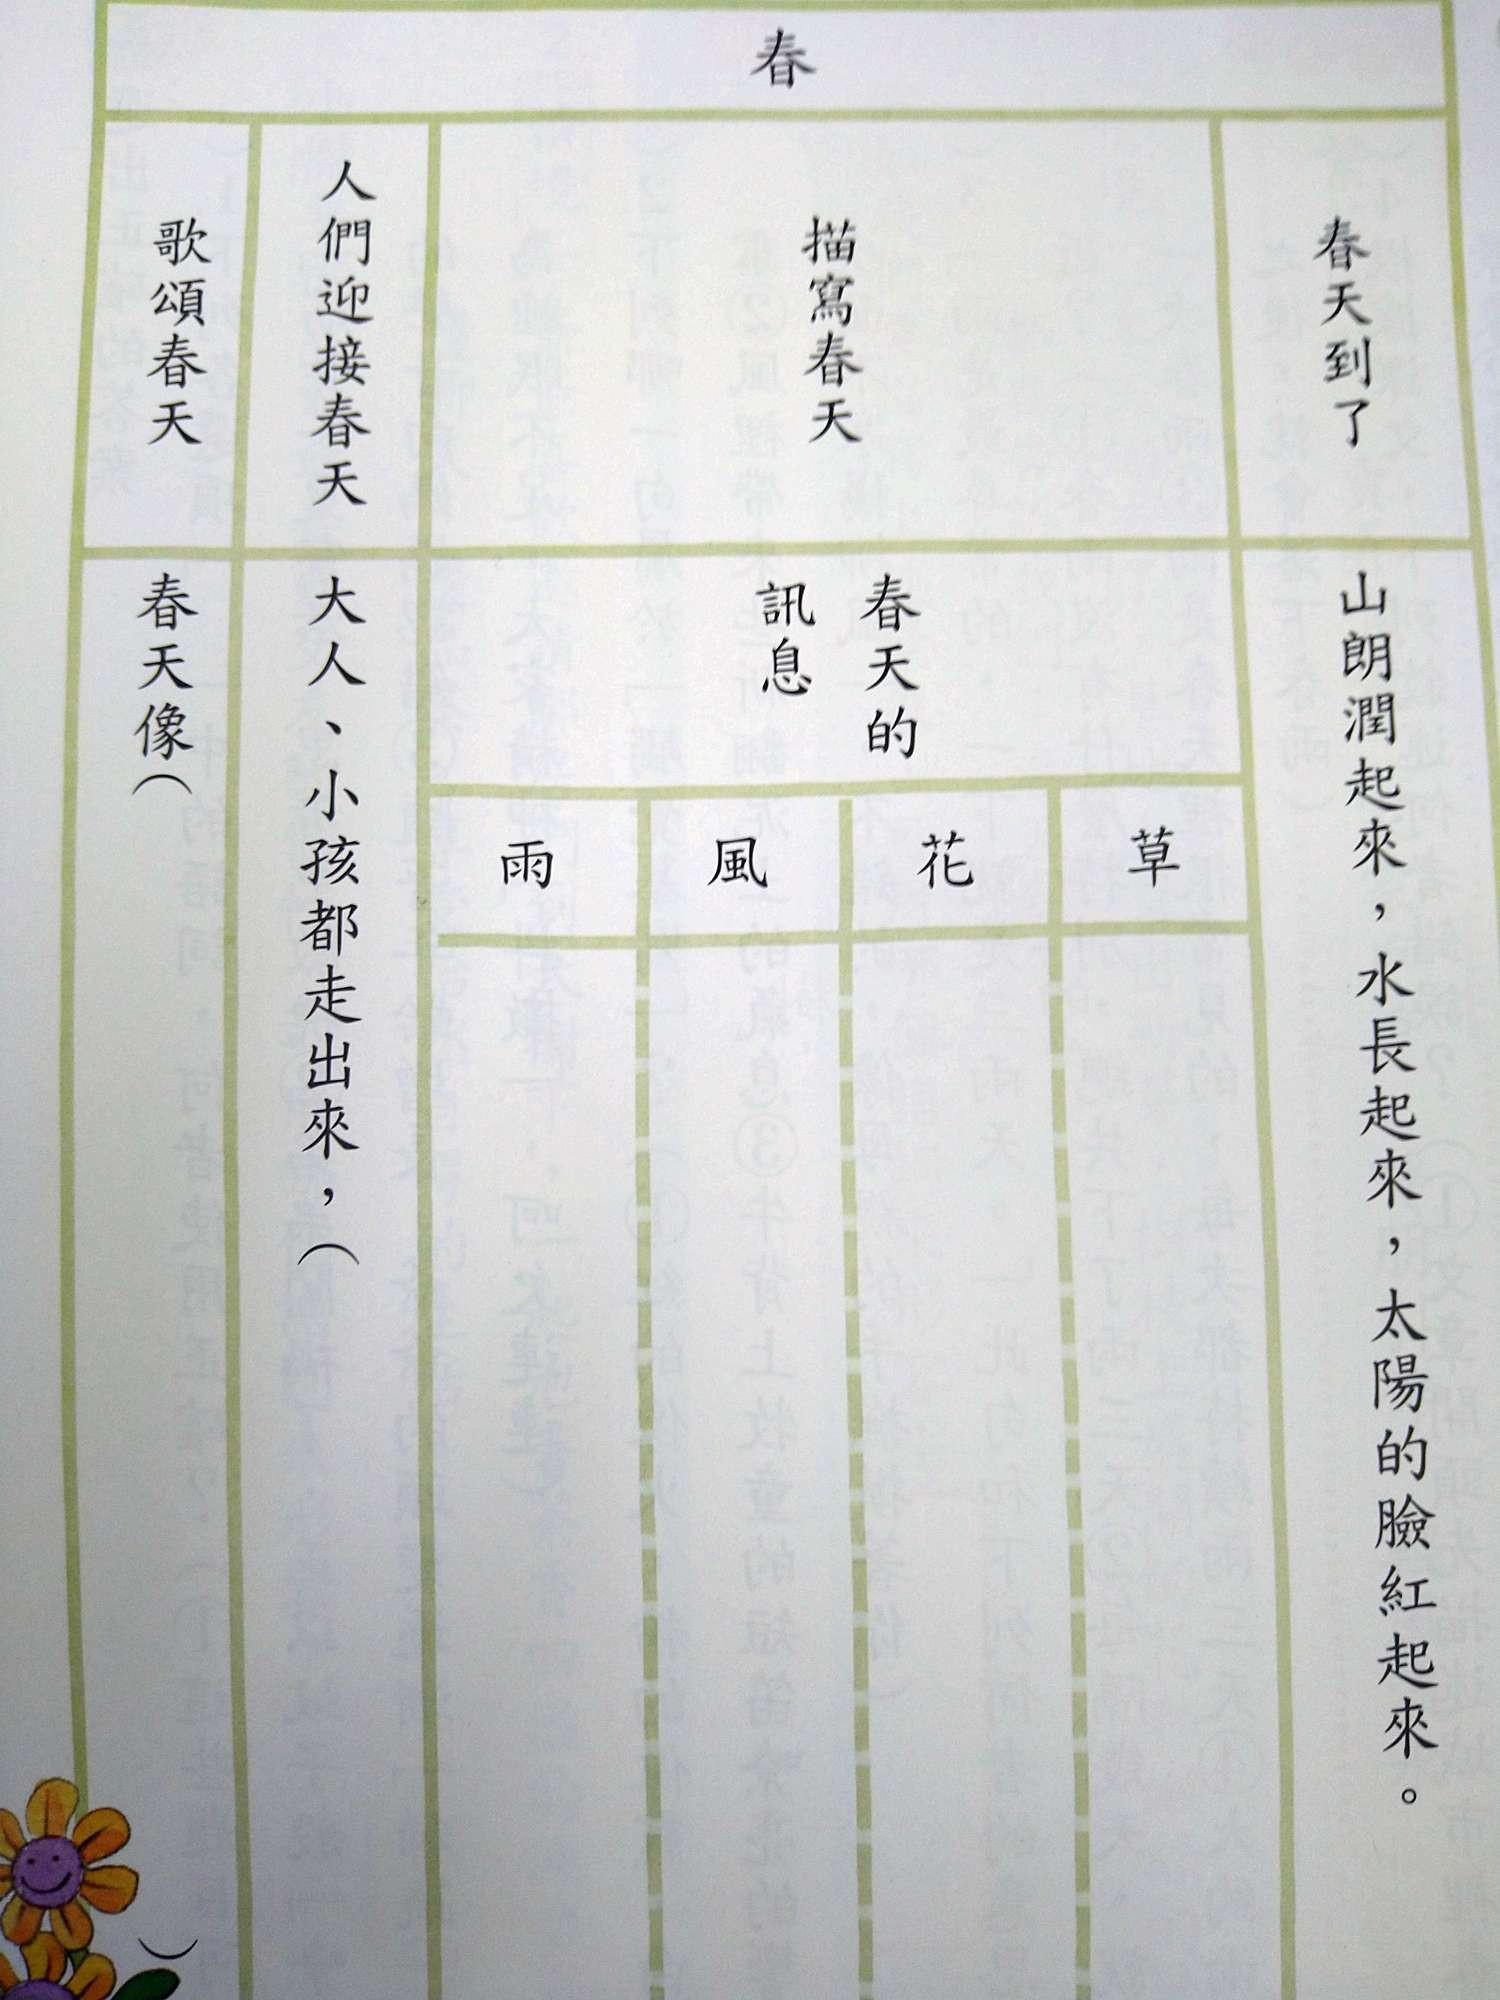 春
春天到了
山朗潤起來，水長起來，太陽的臉紅起來。
描寫春天
春天的
訊息
草
花
風
雨
人們迎接春天
大人、小孩都走出來，（
歌頌春天
春天像（
）